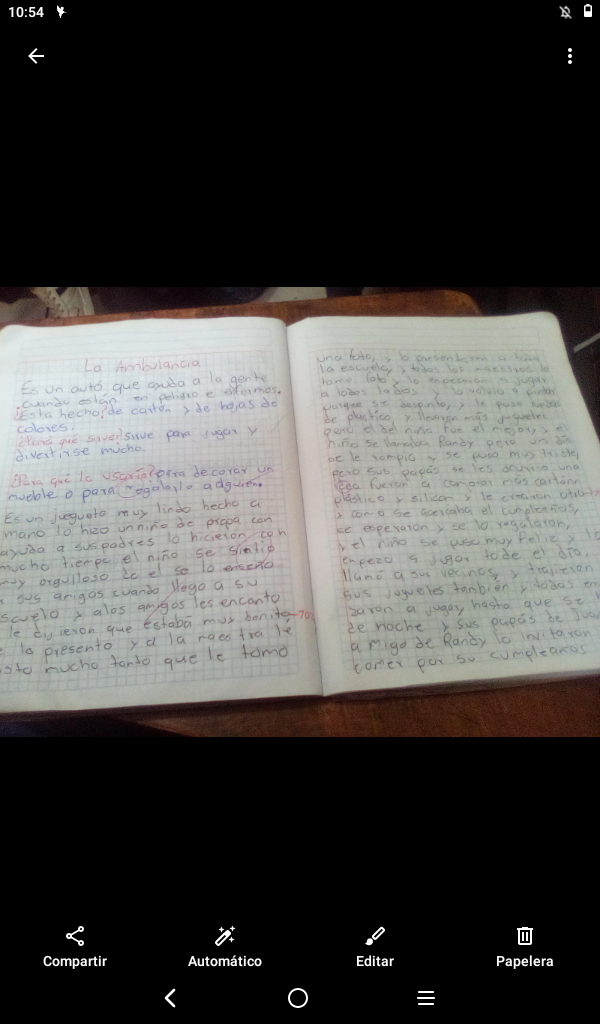 10:54
La Ambulancia
Es un auto, que ayuda a la gente
cuando están en peligro e enfermos.
Esta hecho, de carton y de hojas de
colores.
¿Para qué sirve? sirve para jugar y
divertirse mucho.
¿Para qué la usaria? para decorar un
mueble o para regalarlo a alguien.
Es un juguete muy lindo hecho a
mano lo hizo un niño de con
ayuda a sus padres lo hicieron con
mucho tiempo el niño se sintio
muy orgulloso de el se lo enseño
a sus amigos cuando llego a su
escuela y a los amigos les encanto
le dijieron que estaba muy bonito
lo presento y a la maestra le
gusto mucho tanto que le tomo
una foto, y lo presentaron a toda
la escuela, y todos los maestros le
foto y lo empezaron a jugar
a todos lados y lo volvio a pintar
porque se despinto, y le puso ruedas
de plastico, y llevaron más juguetes
pero el del niño fue el mejor, y el
niño se llamaba Randy pero un día
se le rompio y se puso muy triste,
pero sus papás se les ocurrio una
idea fueron a comprar más carton
plástico y silicon y le crearon
y como se acercaba el cumpleaños,
se esperaron y se lo regalaron,
y el niño se puso muy feliz y lo
empezo a jugar todo el día,
llamo a sus vecinos, y trajieron
sus juguetes también y todos
a jugar, hasta que se
de noche y sus papás de
amigo de Randy lo invitaron
comer por su cumpleaños
Compartir
Automático
Editar
Papelera